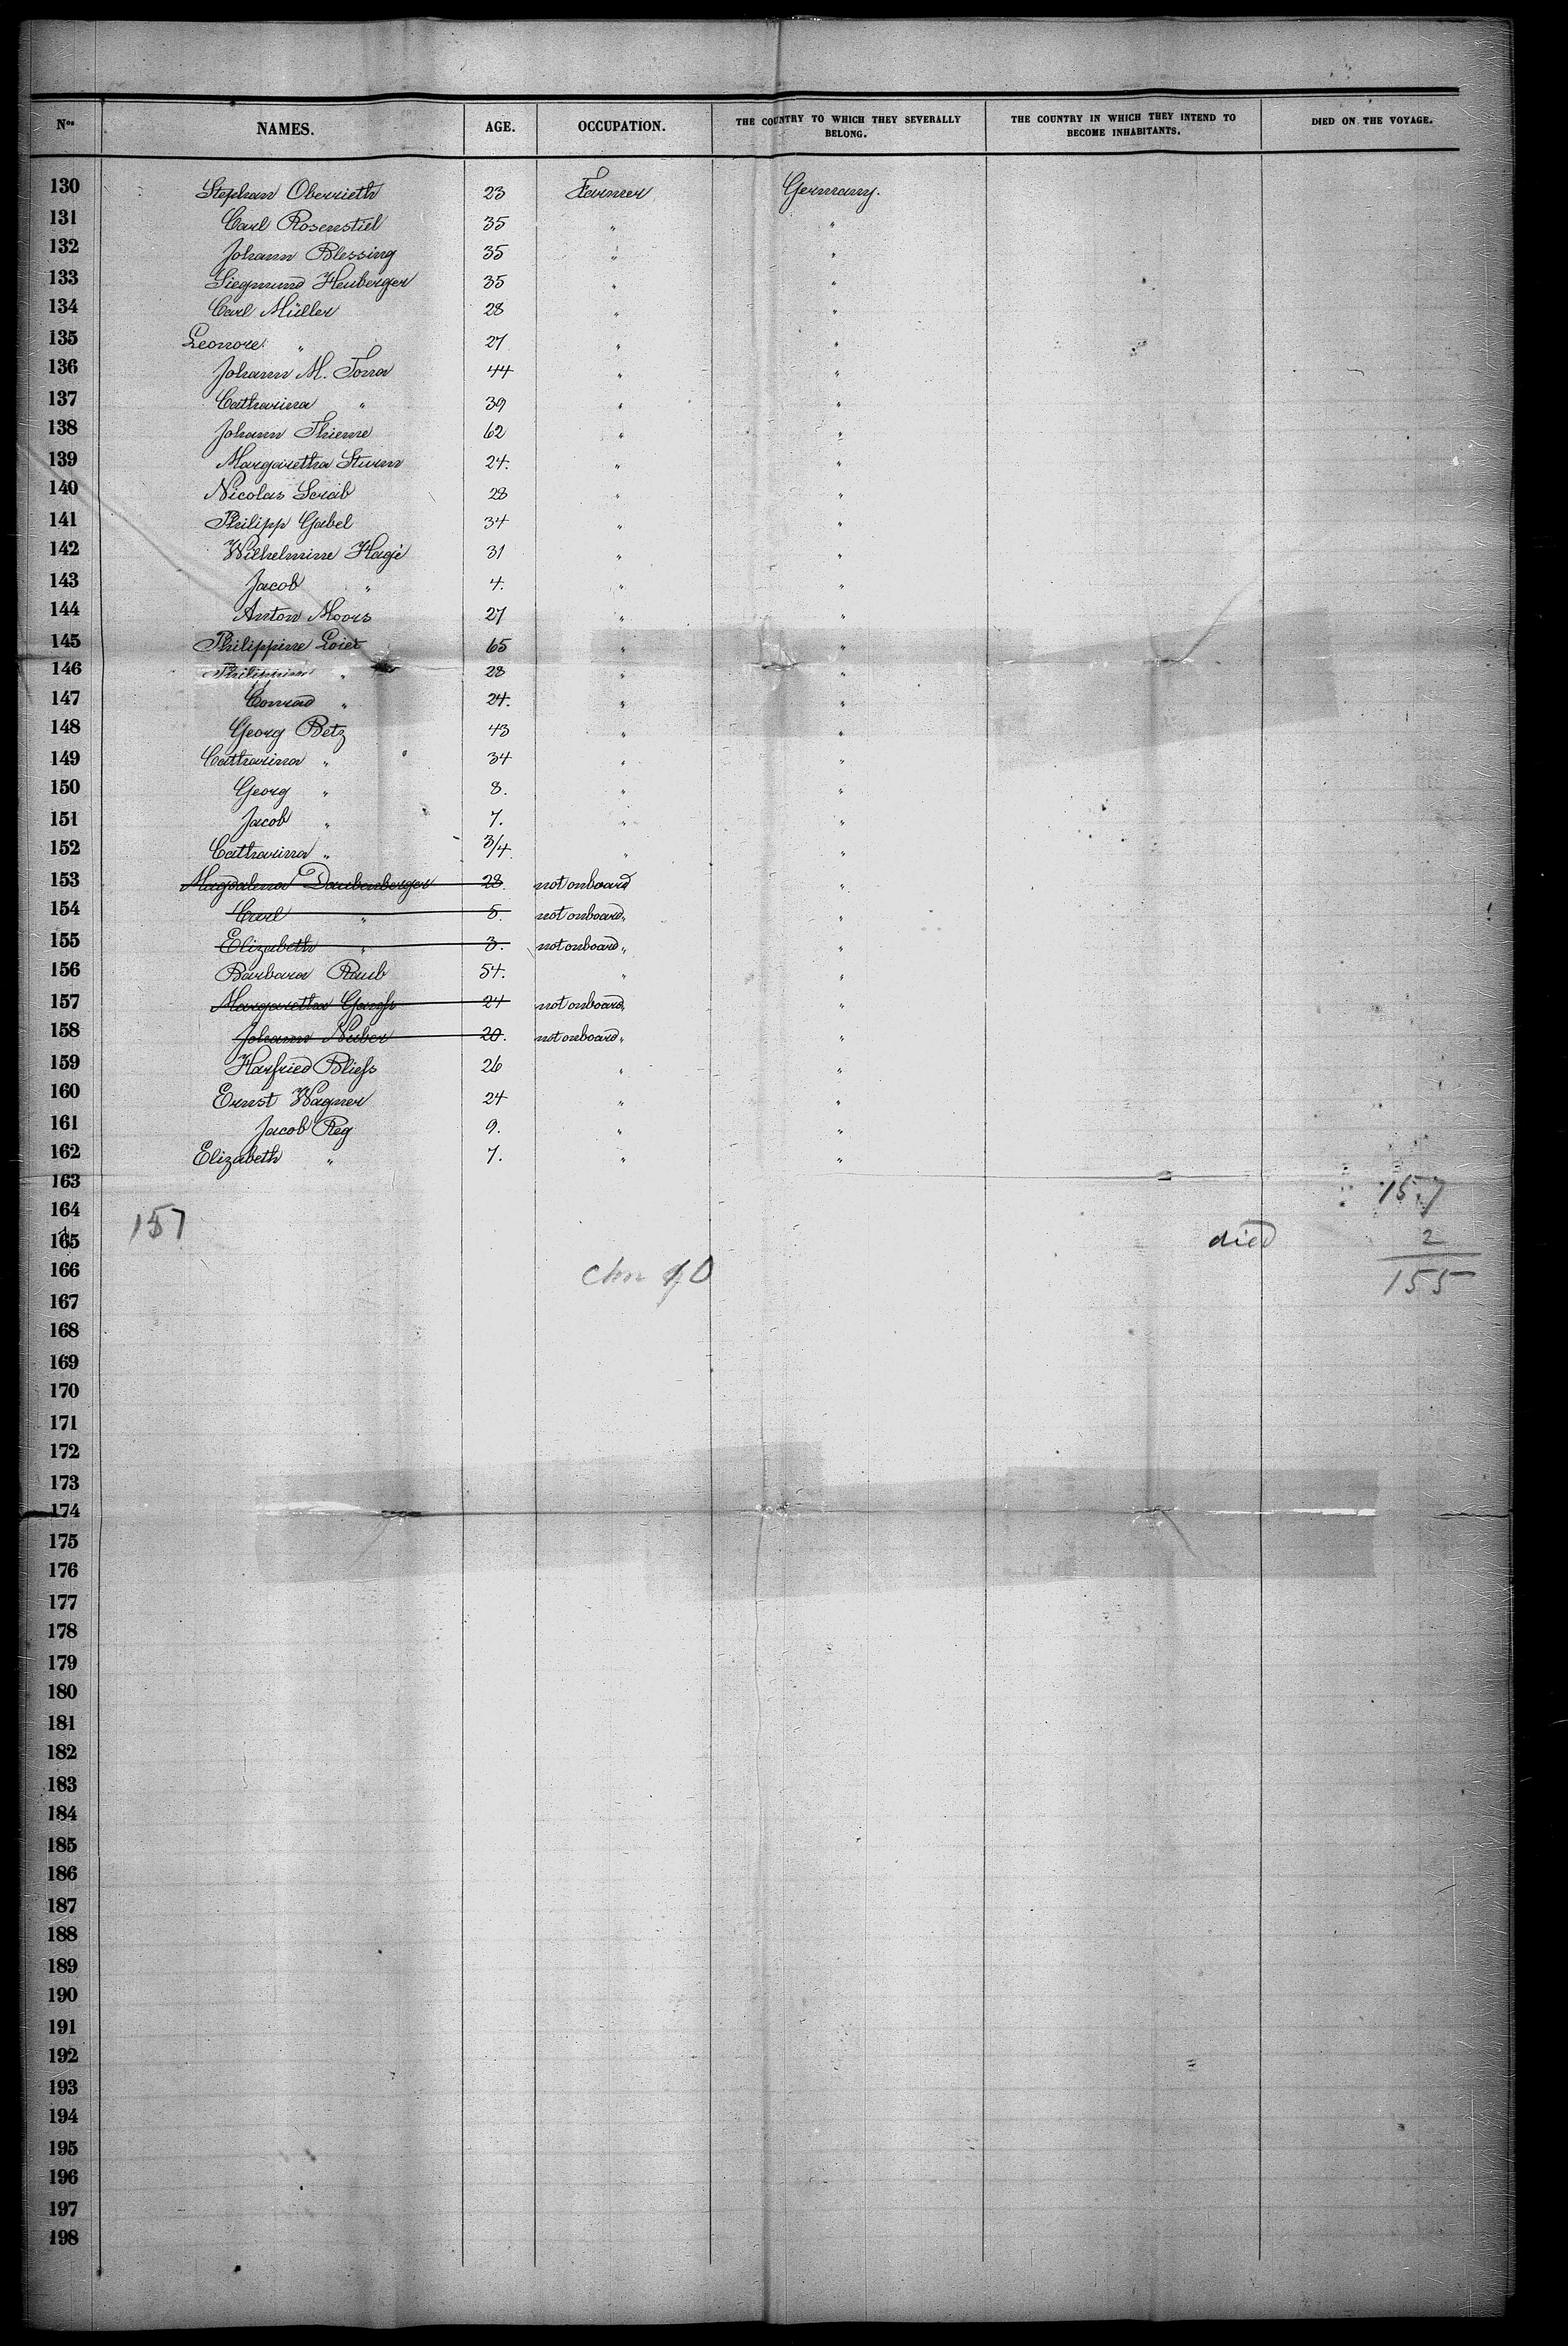 Nos NAMES. AGE. OCCUPATION. THE COUNTRY TO WHICH THEY SEVERALLY BELONG. THE COUNTRY IN WHICH THEY INTEND TO BECOME INHABITANTS. DIED ON THE VOYAGE.
130 Stephan Oberrieth 23 Farmer Germany.
131 Carl Rosenstiel 35 " "
132 Johann Blessing 35 " "
133 Siegmund Heuberger 35 " "
134 Carl Müller 28 " "
135 Leonore " 27 " "
136 Johann M. 44 " "
137 Catharina " 39 " "
138 Johann Thieme 62 " "
139 Margaretha Sturm 24. " "
140 Nicolas 28 " "
141 Philipp Gabel 34 " "
142 Wilhelmine Hagé 31 " "
143 Jacob " 4. " "
144 Anton Moors 27 " "
145 Philippine 65 " "
146 " 28 " "
147 Conrad " 24. " "
148 Georg Betz 43 " "
149 Catharina " 34 " "
150 Georg " 8. " "
151 Jacob " 7. " "
152 Catharina " 3/4 " "
153 Magdalena Daubenberger 28. not onboard "
154 Carl " 5. not onboard " "
155 Elizabeth " 3. not onboard " "
156 Barbara Raub 54. " "
157 Margaretha 24 not onboard " "
158 Johann 20. not onboard " "
159 26 " "
160 Ernst Wagner 24 " "
161 Jacob Reg 9. " "
162 Elizabeth " 7. " "
163 157
164 157
165 died 2
166 155
167
168
169
170
171
172
173
174
175
176
177
178
179
180
181
182
183
184
185
186
187
188
189
190
191
192
193
194
195
196
197
198